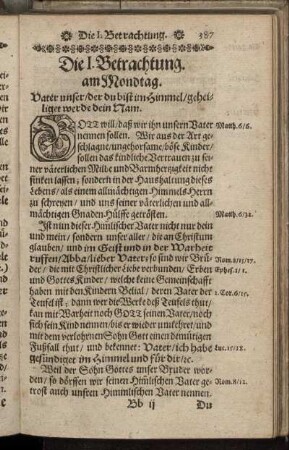 Die I. Betrachtung. 387
Die I. Betrachtung.
am Mondtag.
Vater unser/der du bist im Himmel/gehei-
liget werde dein Nam.
GOTT will/daß wir ihn unsern Vater Matth. 6/6.
nennen sollen. Wir aus der Art ge-
schlagne/ungehorsame/böse Kinder/
sollen das kindliche Vertrauen zu sei-
ner väterlichen Milde und Barmhertzigkeit nicht
sinken lassen; sondern in der Haushaltung dieses
Lebens/als einem allmächtigen Himmels-Herrn
zu schreyen/ und uns seiner väterlichen und all-
mächtigen Gnaden-Hülffe getrösten. Matth. 6/32.
Ist nun dieser Himlischer Vater nicht nur dein
und mein/ sondern unser aller / die an Christum
glauben/ und im Geist und in der Warheit
ruffen/Abba/lieber Vater; so sind wir Brü- Rom. 8/15/17.
der / die mit Christlicher Liebe verbunden / Erben Ephes. 1/1.
und Gottes Kinder / welche keine Gemeinschafft
haben mit den Kindern Belial / deren Vater der 2. Cor. 6/15.
Teufel ist; dann wer die Werke deß Teufels thut/
kan mit Warheit noch GOTT seinen Vater/noch
sich sein Kind nennen/bis er wieder umkehret/und
mit dem verlohrnen Sohn Gott einen demütigen
Fußfall thut/ und bekennet: Vater/ich habe Luc. 15/18.
gesündiget im Himmel und für dir/ꝛc.
Weil der Sohn Gottes unser Bruder wor-
den/ so dörffen wir seinen Himlischen Vater ge- Rom. 8/12.
trost auch unsren Himmlischen Vater nennen.
Bb ij Du